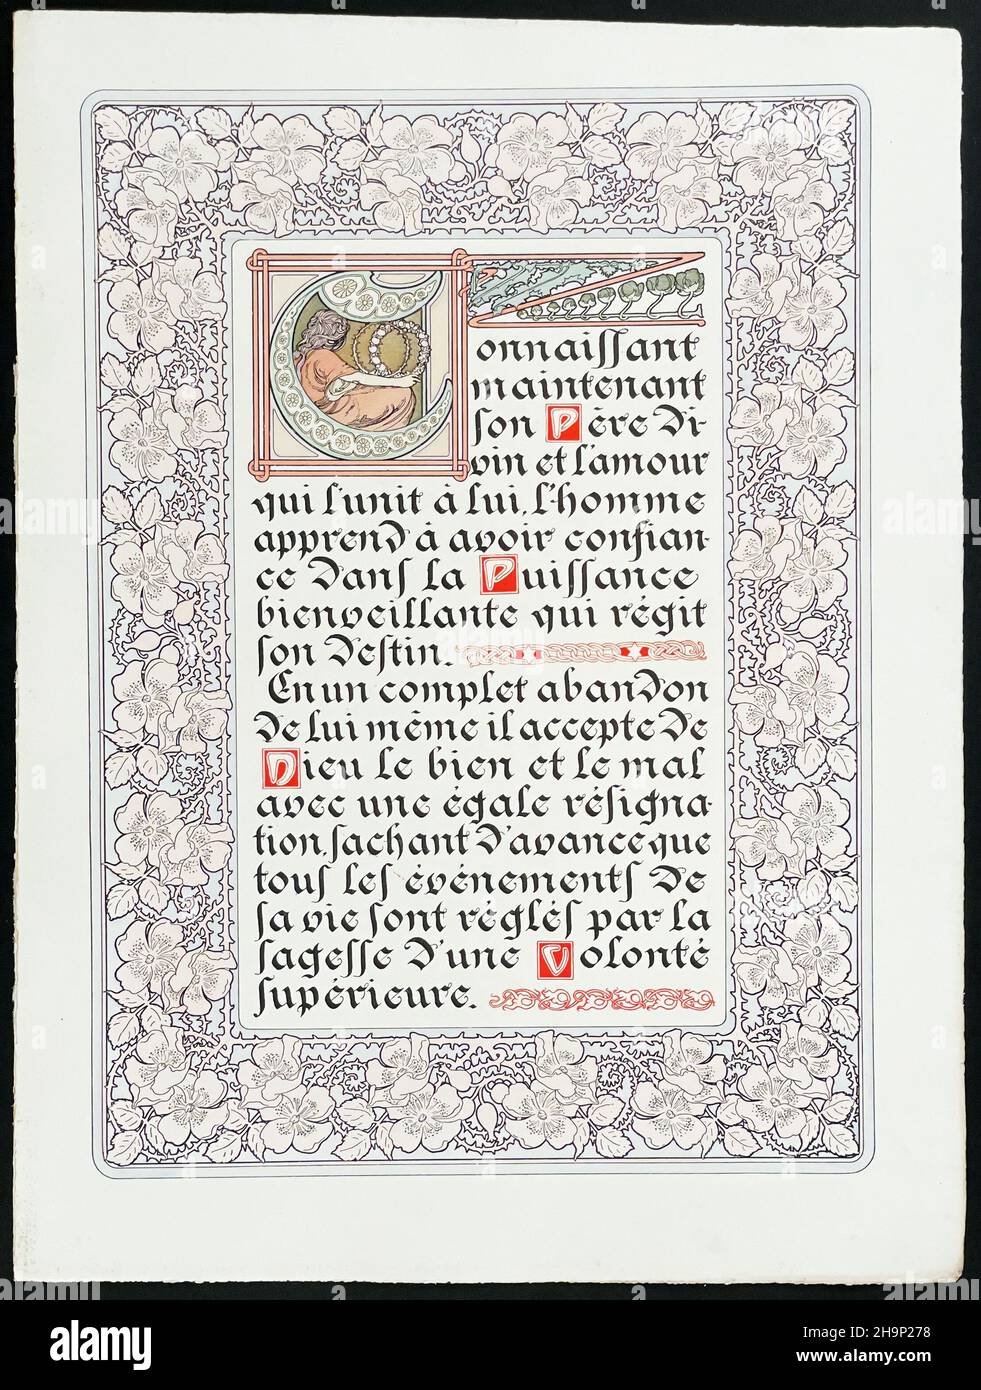 Connaissant
maintenant
son Père Di-
vin et l'amour
qui l'unit à lui, l'homme
apprend à avoir confian-
ce dans la Puissance
bienveillante qui régit
son destin.
En un complet abandon
de lui même il accepte de
Dieu le bien et le mal
avec une égale résigna-
tion, sachant d'avance que
tous les événements de
sa vie sont réglés par la
sagesse d'une Volonté
supérieure.
alamy
Image ID: 2H9P278
www.alamy.com